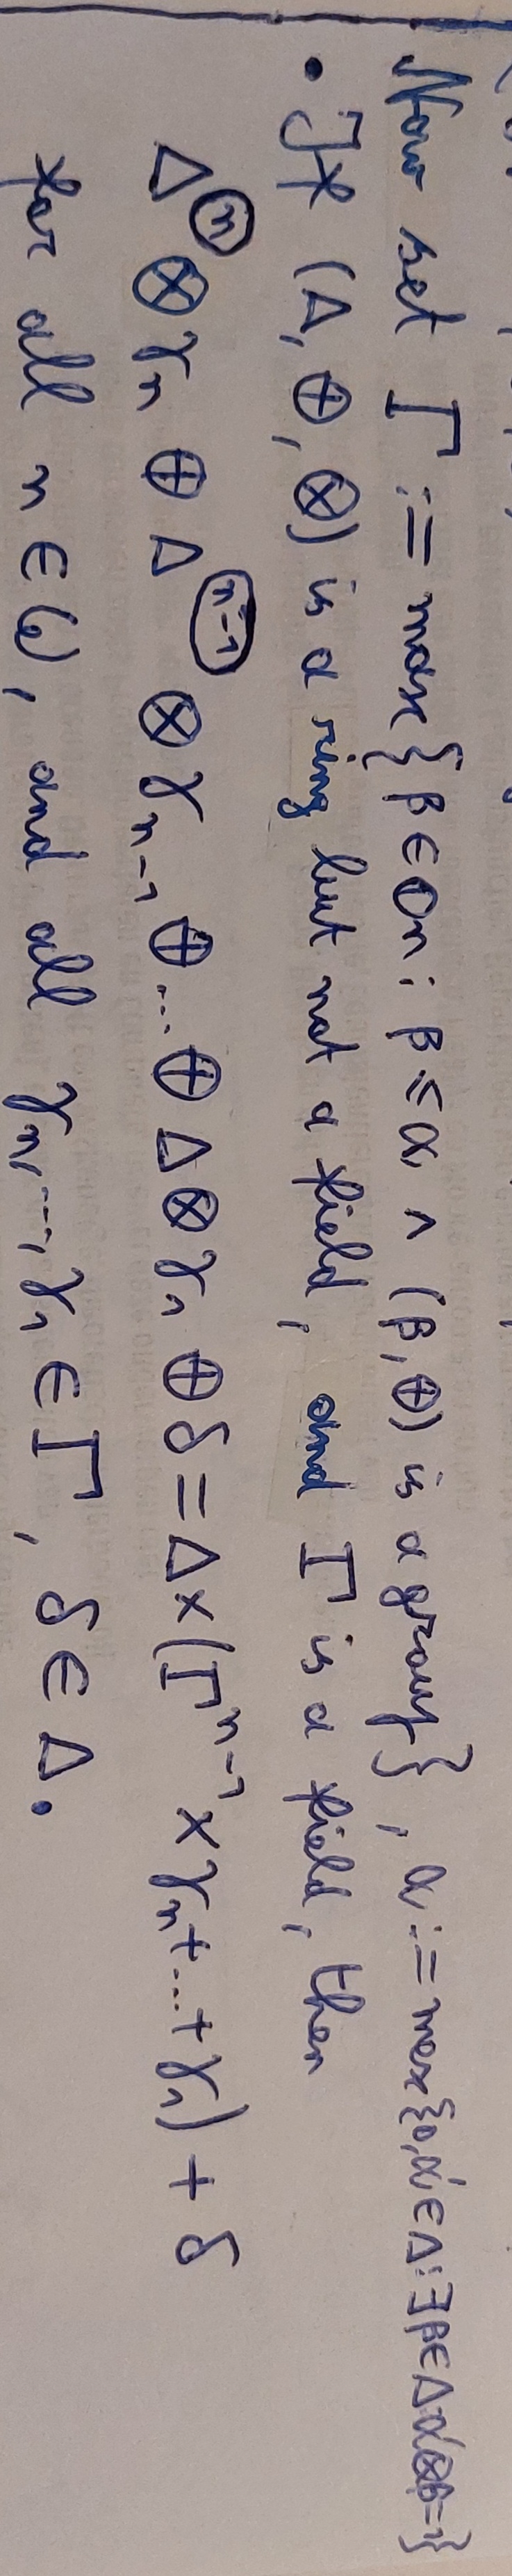 Now set Γ := max{β ∈ On : β ≤ α ∧ (β, ⊕) is a group}, α := mex{0, α' ∈ Δ : ∃β ∈ Δ α'⊗β=1}
• If (Δ, ⊕, ⊗) is a ring but not a field, and Γ is a field, then
Δ^ⓝ ⊗ γₙ ⊕ Δ^(n-1) ⊗ γₙ₋₁ ⊕ ... ⊕ Δ ⊗ γ₁ ⊕ δ = Δ × (Γⁿ⁻¹ × γₙ + ... + γ₁) + δ
for all n ∈ ω, and all γₙ, ..., γ₁ ∈ Γ, δ ∈ Δ.